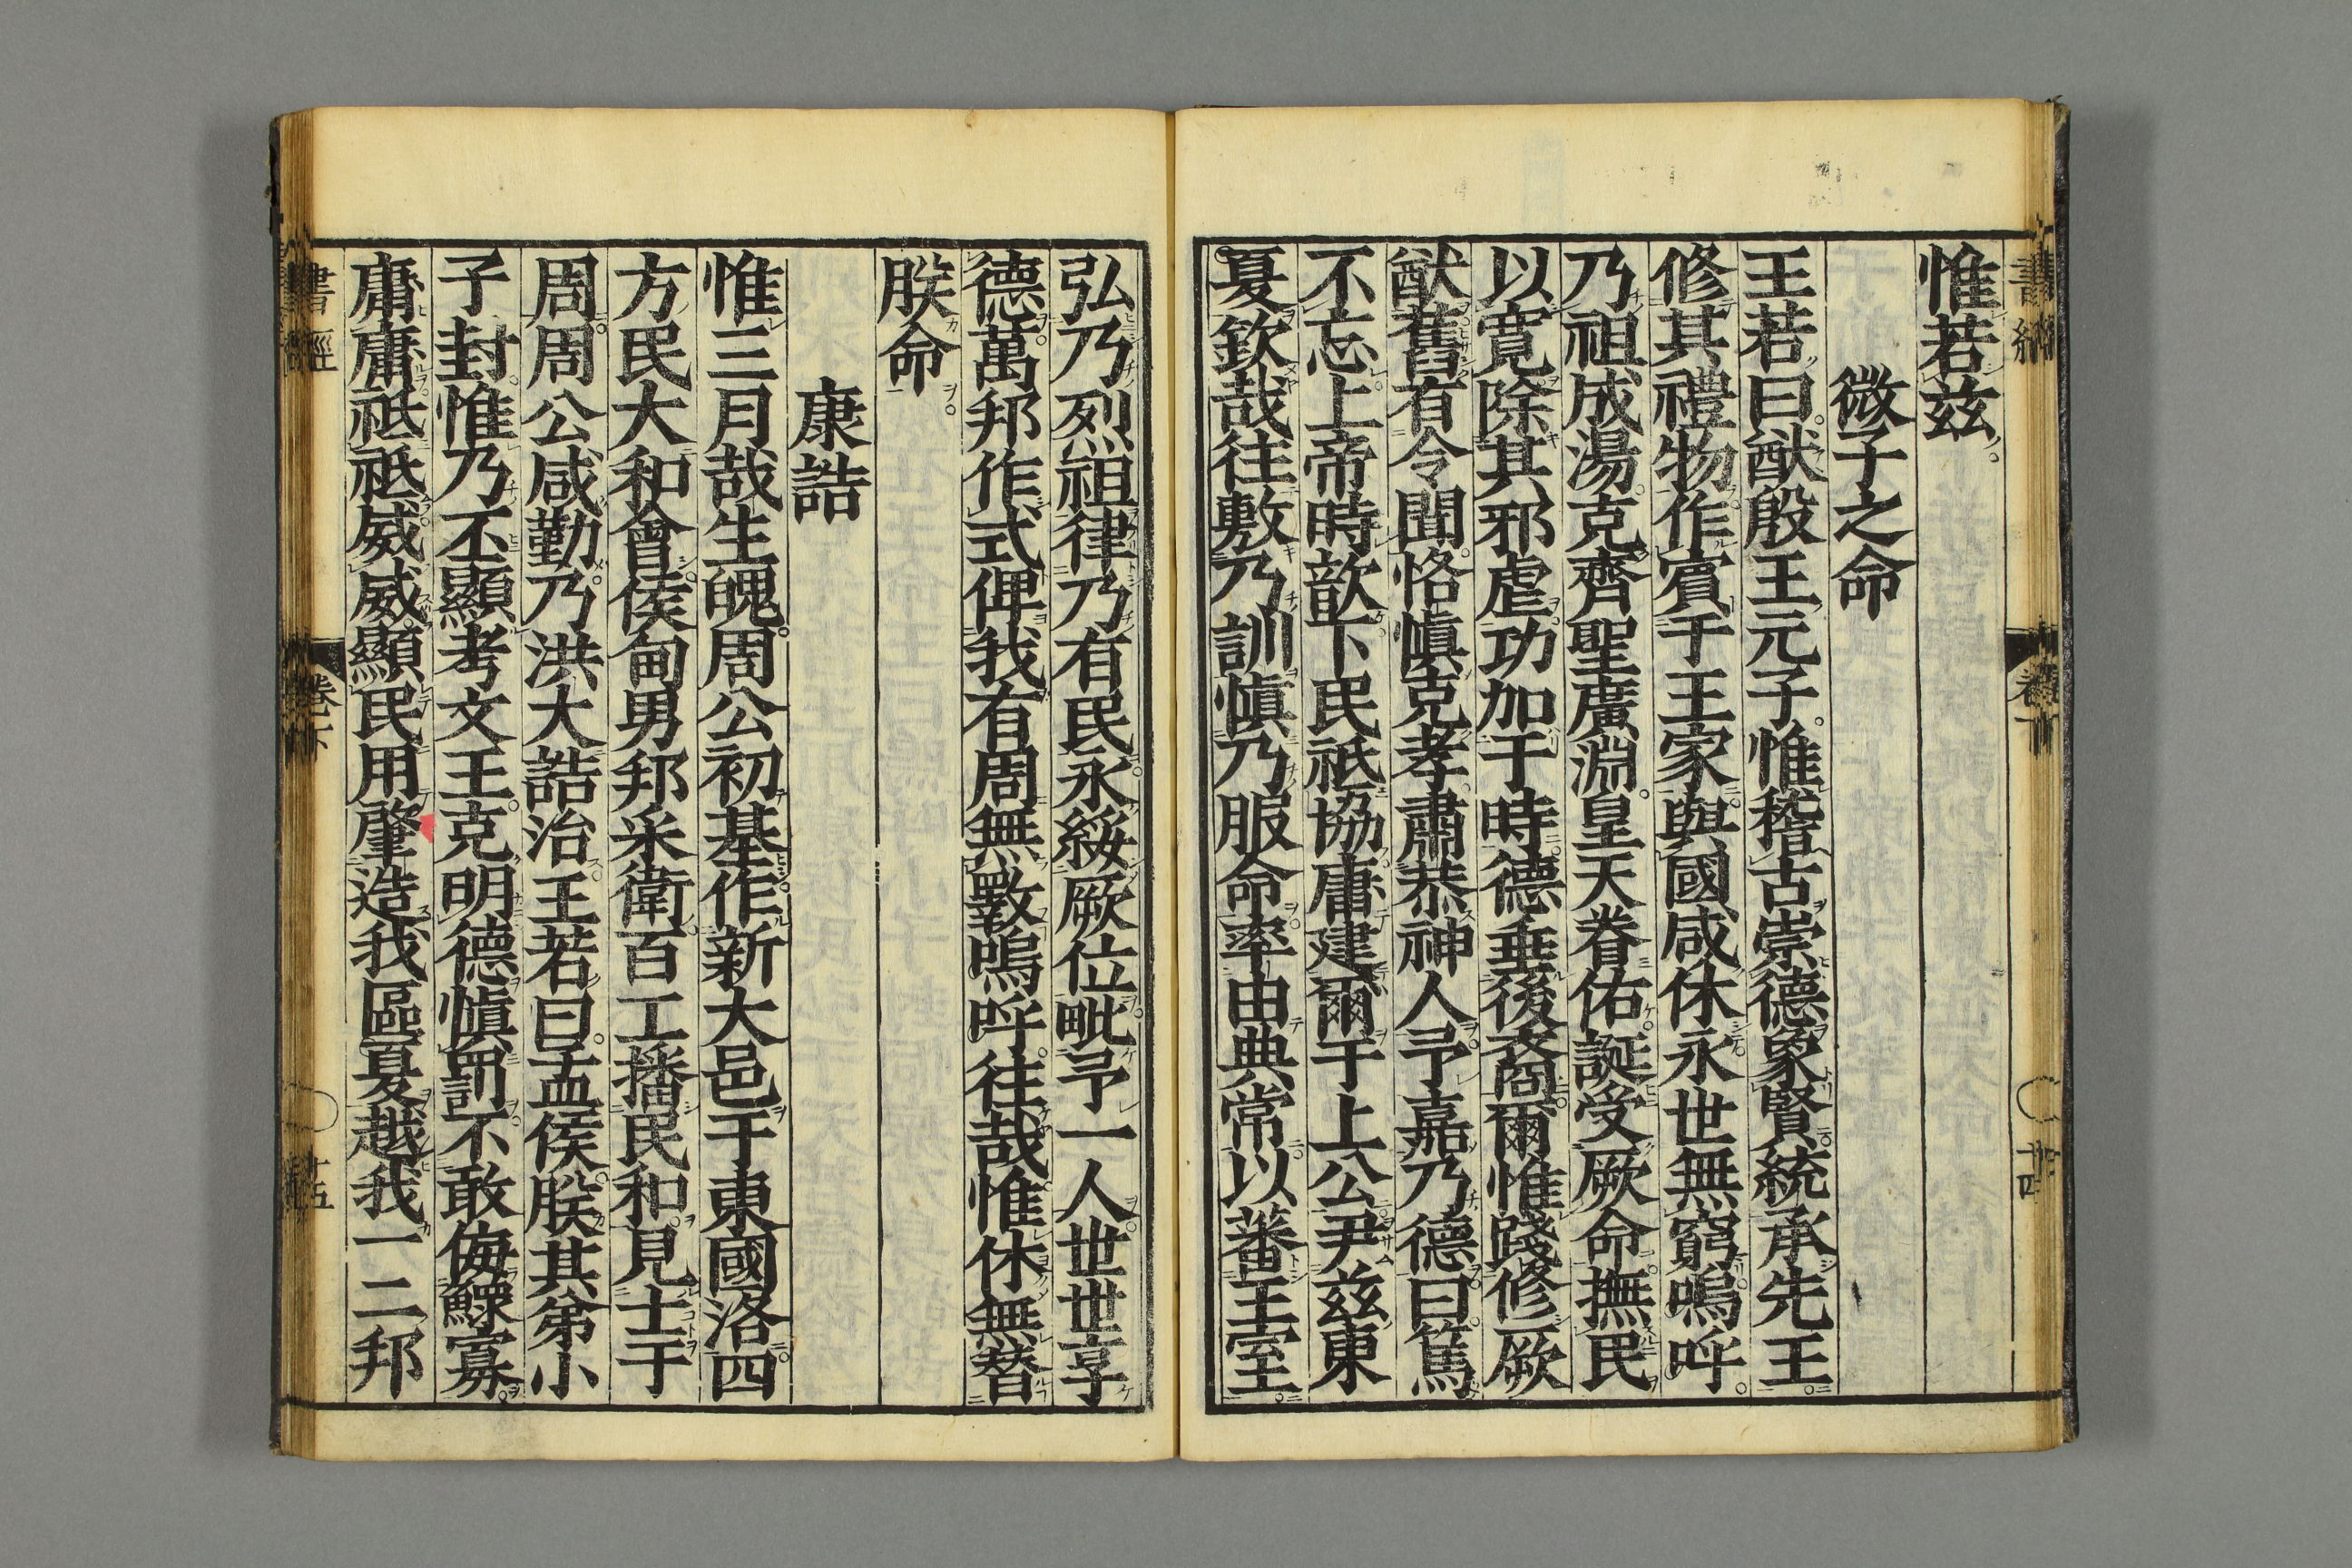 惟若茲
微子之命
王若曰猷殷王元子惟稽古崇德象賢統承先王
修其禮物作賓于王家與國咸休永世無窮嗚呼
乃祖成湯克齊聖廣淵皇天眷佑誕受厥命撫民
以寬除其邪虐功加于時德垂後裔爾惟踐修厥
猷舊有令聞恪愼克孝肅恭神人予嘉乃德曰篤
不忘上帝時歆下民祗協庸建爾于上公尹茲東
夏欽哉往敷乃訓愼乃服命率由典常以蕃王室
弘乃烈祖律乃有民永綏厥位毗予一人世世享
德萬邦作式俾我有周無斁嗚呼往哉惟休無替
朕命
康誥
惟三月哉生魄周公初基作新大邑于東國洛四
方民大和會侯甸男邦采衛百工播民和見士于
周周公咸勤乃洪大誥治王若曰孟侯朕其弟小
子封惟乃丕顯考文王克明德愼罰不敢侮鰥寡
庸庸祗祗威威顯民用肇造我區夏越我一二邦
書經
卷下